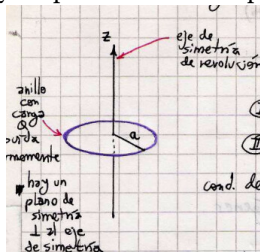 z
eje de
simetría
de revolución
anillo
con
carga
Q
a
I
II
hay un
plano de
simetría
⊥ al eje
de simetría
cond. de